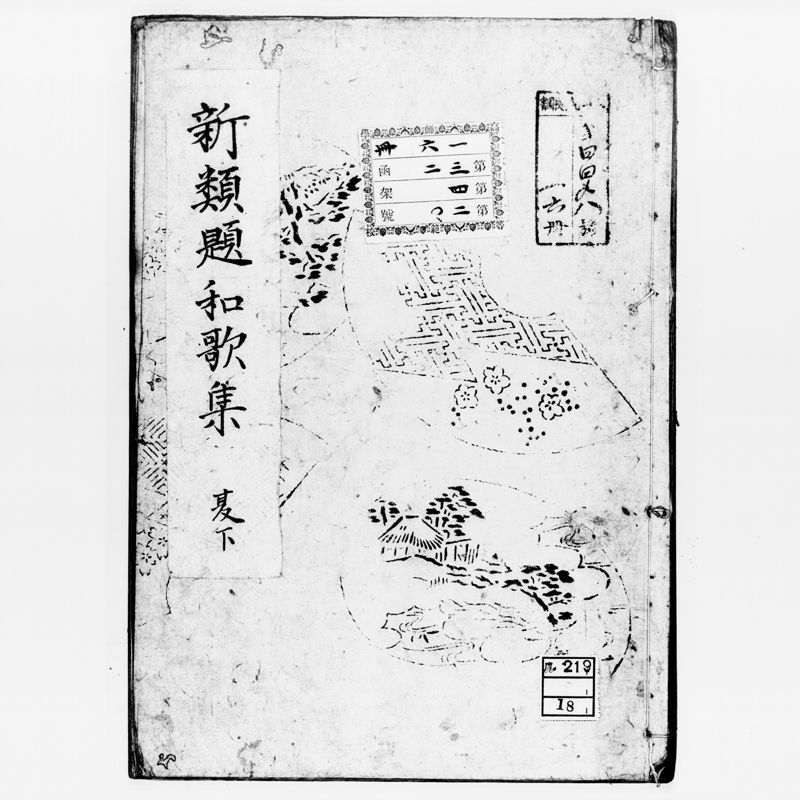 新類題和歌集
夏下
一六冊
第三二函
第四架
第二 號
四四八號
一六冊
219
18